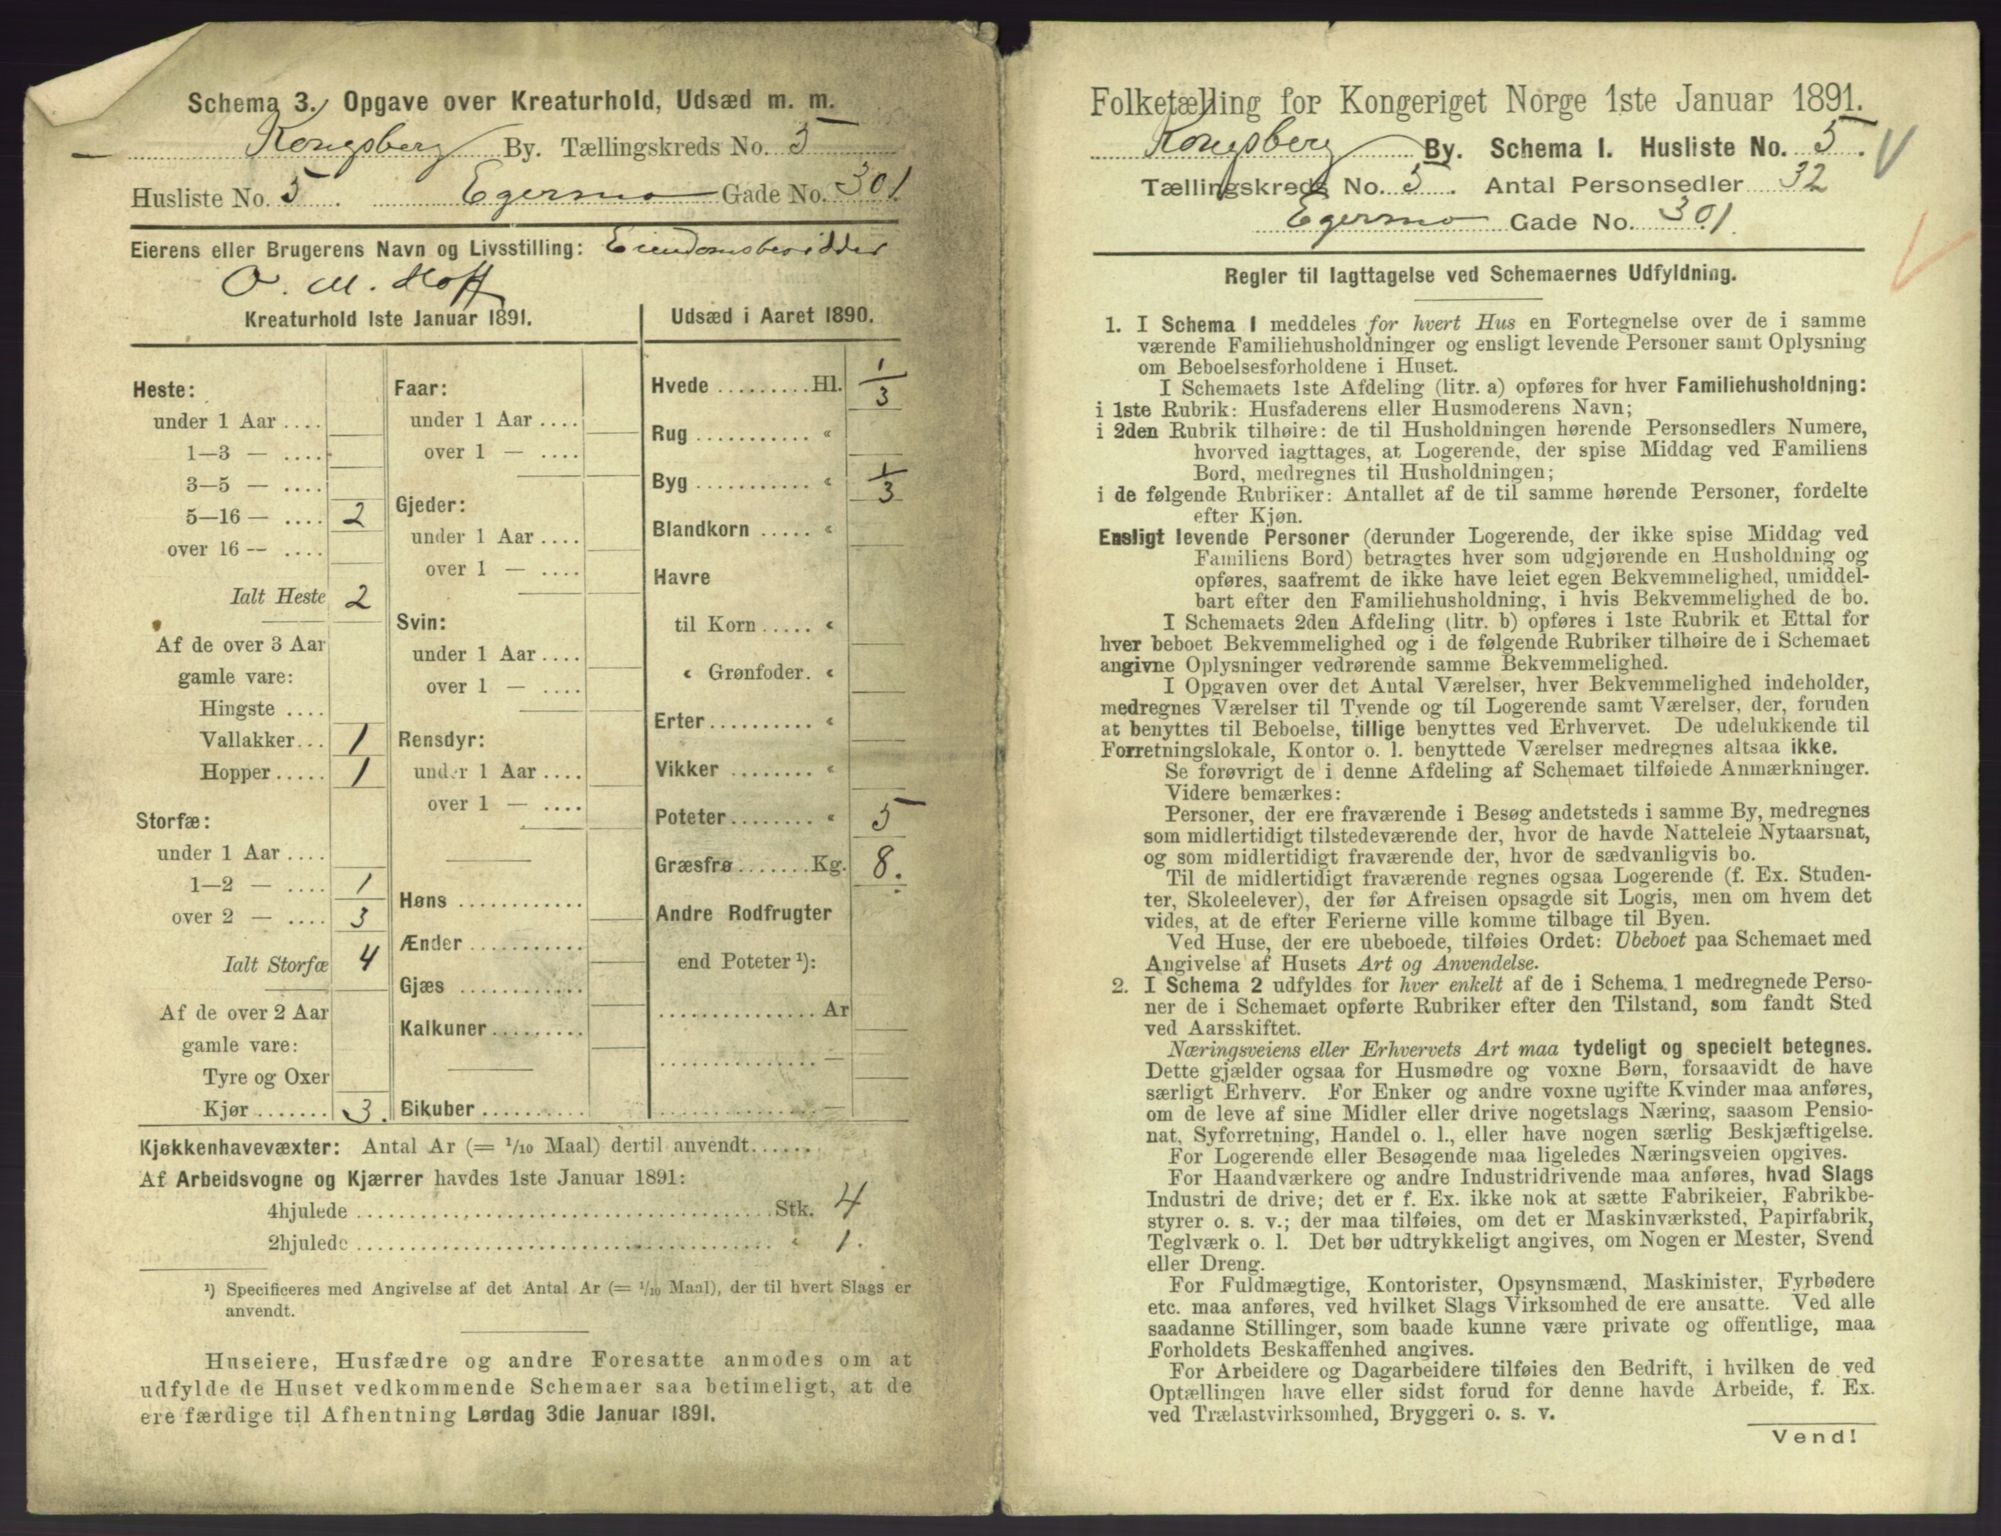 Schema 3. Opgave over Kreaturhold, Udsæd m. m.
Kongsberg By. Tællingskreds No. 5
Husliste No. 5. Egermo Gade No. 301.
Eierens eller Brugerens Navn og Livsstilling: Eiendomsbesidder
O. M. Hoff
Kreaturhold 1ste Januar 1891.
Heste:
under 1 Aar ....
1—3 — ....
3—5 — ....
5—16 — .... 2
over 16 — ....
Ialt Heste 2
Af de over 3 Aar
gamle vare:
Hingste ....
Vallakker... 1
Hopper..... 1
Storfæ:
under 1 Aar ....
1—2 — .... 1
over 2 — .... 3
Ialt Storfæ 4
Af de over 2 Aar
gamle vare:
Tyre og Oxer
Kjør....... 3.
Faar:
under 1 Aar ....
over 1 — ....
Gjeder:
under 1 Aar ....
over 1 — ....
Svin:
under 1 Aar ....
over 1 — ....
Rensdyr:
under 1 Aar ....
over 1 — ....
Høns ............
Ænder ...........
Gjæs ............
Kalkuner.........
Bikuber ..........
Udsæd i Aaret 1890.
Hvede ......... Hl. 1/3
Rug ........... «
Byg ........... « 1/3
Blandkorn ..... «
Havre
til Korn ..... «
« Grønfoder. «
Erter ......... «
Vikker ........ «
Poteter........ « 5
Græsfrø....... Kg. 8.
Andre Rodfrugter
end Poteter ¹):
............... Ar
............... —
............... —
Kjøkkenhavevæxter: Antal Ar (= 1/10 Maal) dertil anvendt......
Af Arbeidsvogne og Kjærrer havdes 1ste Januar 1891:
4hjulede ........................................ Stk. 4
2hjulede ........................................ « 1.
¹) Specificeres med Angivelse af det Antal Ar (= 1/10 Maal), der til hvert Slags er
anvendt.
Huseiere, Husfædre og andre Foresatte anmodes om at
udfylde de Huset vedkommende Schemaer saa betimeligt, at de
ere færdige til Afhentning Lørdag 3die Januar 1891.
Folketælling for Kongeriget Norge 1ste Januar 1891.
Kongsberg By. Schema I. Husliste No. 5.
Tællingskreds No. 5. Antal Personsedler 32
Egermo Gade No. 301.
Regler til Iagttagelse ved Schemaernes Udfyldning.
1. I Schema I meddeles for hvert Hus en Fortegnelse over de i samme
værende Familiehusholdninger og ensligt levende Personer samt Oplysning
om Beboelsesforholdene i Huset.
I Schemaets 1ste Afdeling (litr. a) opføres for hver Familiehusholdning:
i 1ste Rubrik: Husfaderens eller Husmoderens Navn;
i 2den Rubrik tilhøire: de til Husholdningen hørende Personsedlers Numere,
hvorved iagttages, at Logerende, der spise Middag ved Familiens
Bord, medregnes til Husholdningen;
i de følgende Rubriker: Antallet af de til samme hørende Personer, fordelte
efter Kjøn.
Ensligt levende Personer (derunder Logerende, der ikke spise Middag ved
Familiens Bord) betragtes hver som udgjørende en Husholdning og
opføres, saafremt de ikke have leiet egen Bekvemmelighed, umiddel-
bart efter den Familiehusholdning, i hvis Bekvemmelighed de bo.
I Schemaets 2den Afdeling (litr. b) opføres i 1ste Rubrik et Ettal for
hver beboet Bekvemmelighed og i de følgende Rubriker tilhøire de i Schemaet
angivne Oplysninger vedrørende samme Bekvemmelighed.
I Opgaven over det Antal Værelser, hver Bekvemmelighed indeholder,
medregnes Værelser til Tyende og til Logerende samt Værelser, der, foruden
at benyttes til Beboelse, tillige benyttes ved Erhvervet. De udelukkende til
Forretningslokale, Kontor o. l. benyttede Værelser medregnes altsaa ikke.
Se forøvrigt de i denne Afdeling af Schemaet tilføiede Anmærkninger.
Videre bemærkes:
Personer, der ere fraværende i Besøg andetsteds i samme By, medregnes
som midlertidigt tilstedeværende der, hvor de havde Natteleie Nytaarsnat,
og som midlertidigt fraværende der, hvor de sædvanligvis bo.
Til de midlertidigt fraværende regnes ogsaa Logerende (f. Ex. Studen-
ter, Skoleelever), der før Afreisen opsagde sit Logis, men om hvem det
vides, at de efter Ferierne ville komme tilbage til Byen.
Ved Huse, der ere ubeboede, tilføies Ordet: Ubeboet paa Schemaet med
Angivelse af Husets Art og Anvendelse.
2. I Schema 2 udfyldes for hver enkelt af de i Schema 1 medregnede Perso-
ner de i Schemaet opførte Rubriker efter den Tilstand, som fandt Sted
ved Aarsskiftet.
Næringsveiens eller Erhvervets Art maa tydeligt og specielt betegnes.
Dette gjælder ogsaa for Husmødre og voxne Børn, forsaavidt de have
særligt Erhverv. For Enker og andre voxne ugifte Kvinder maa anføres,
om de leve af sine Midler eller drive nogetslags Næring, saasom Pensio-
nat, Syforretning, Handel o. l., eller have nogen særlig Beskjæftigelse.
For Logerende eller Besøgende maa ligeledes Næringsveien opgives.
For Haandværkere og andre Industridrivende maa anføres, hvad Slags
Industri de drive; det er f. Ex. ikke nok at sætte Fabrikeier, Fabrikbe-
styrer o. s. v.; der maa tilføies, om det er Maskinværksted, Papirfabrik,
Teglværk o. l. Det bør udtrykkeligt angives, om Nogen er Mester, Svend
eller Dreng.
For Fuldmægtige, Kontorister, Opsynsmænd, Maskinister, Fyrbødere
etc. maa anføres, ved hvilket Slags Virksomhed de ere ansatte. Ved alle
saadanne Stillinger, som baade kunne være private og offentlige, maa
Forholdets Beskaffenhed angives.
For Arbeidere og Dagarbeidere tilføies den Bedrift, i hvilken de ved
Optællingen have eller sidst forud for denne havde Arbeide, f. Ex.
ved Trælastvirksomhed, Bryggeri o. s. v.
Vend!